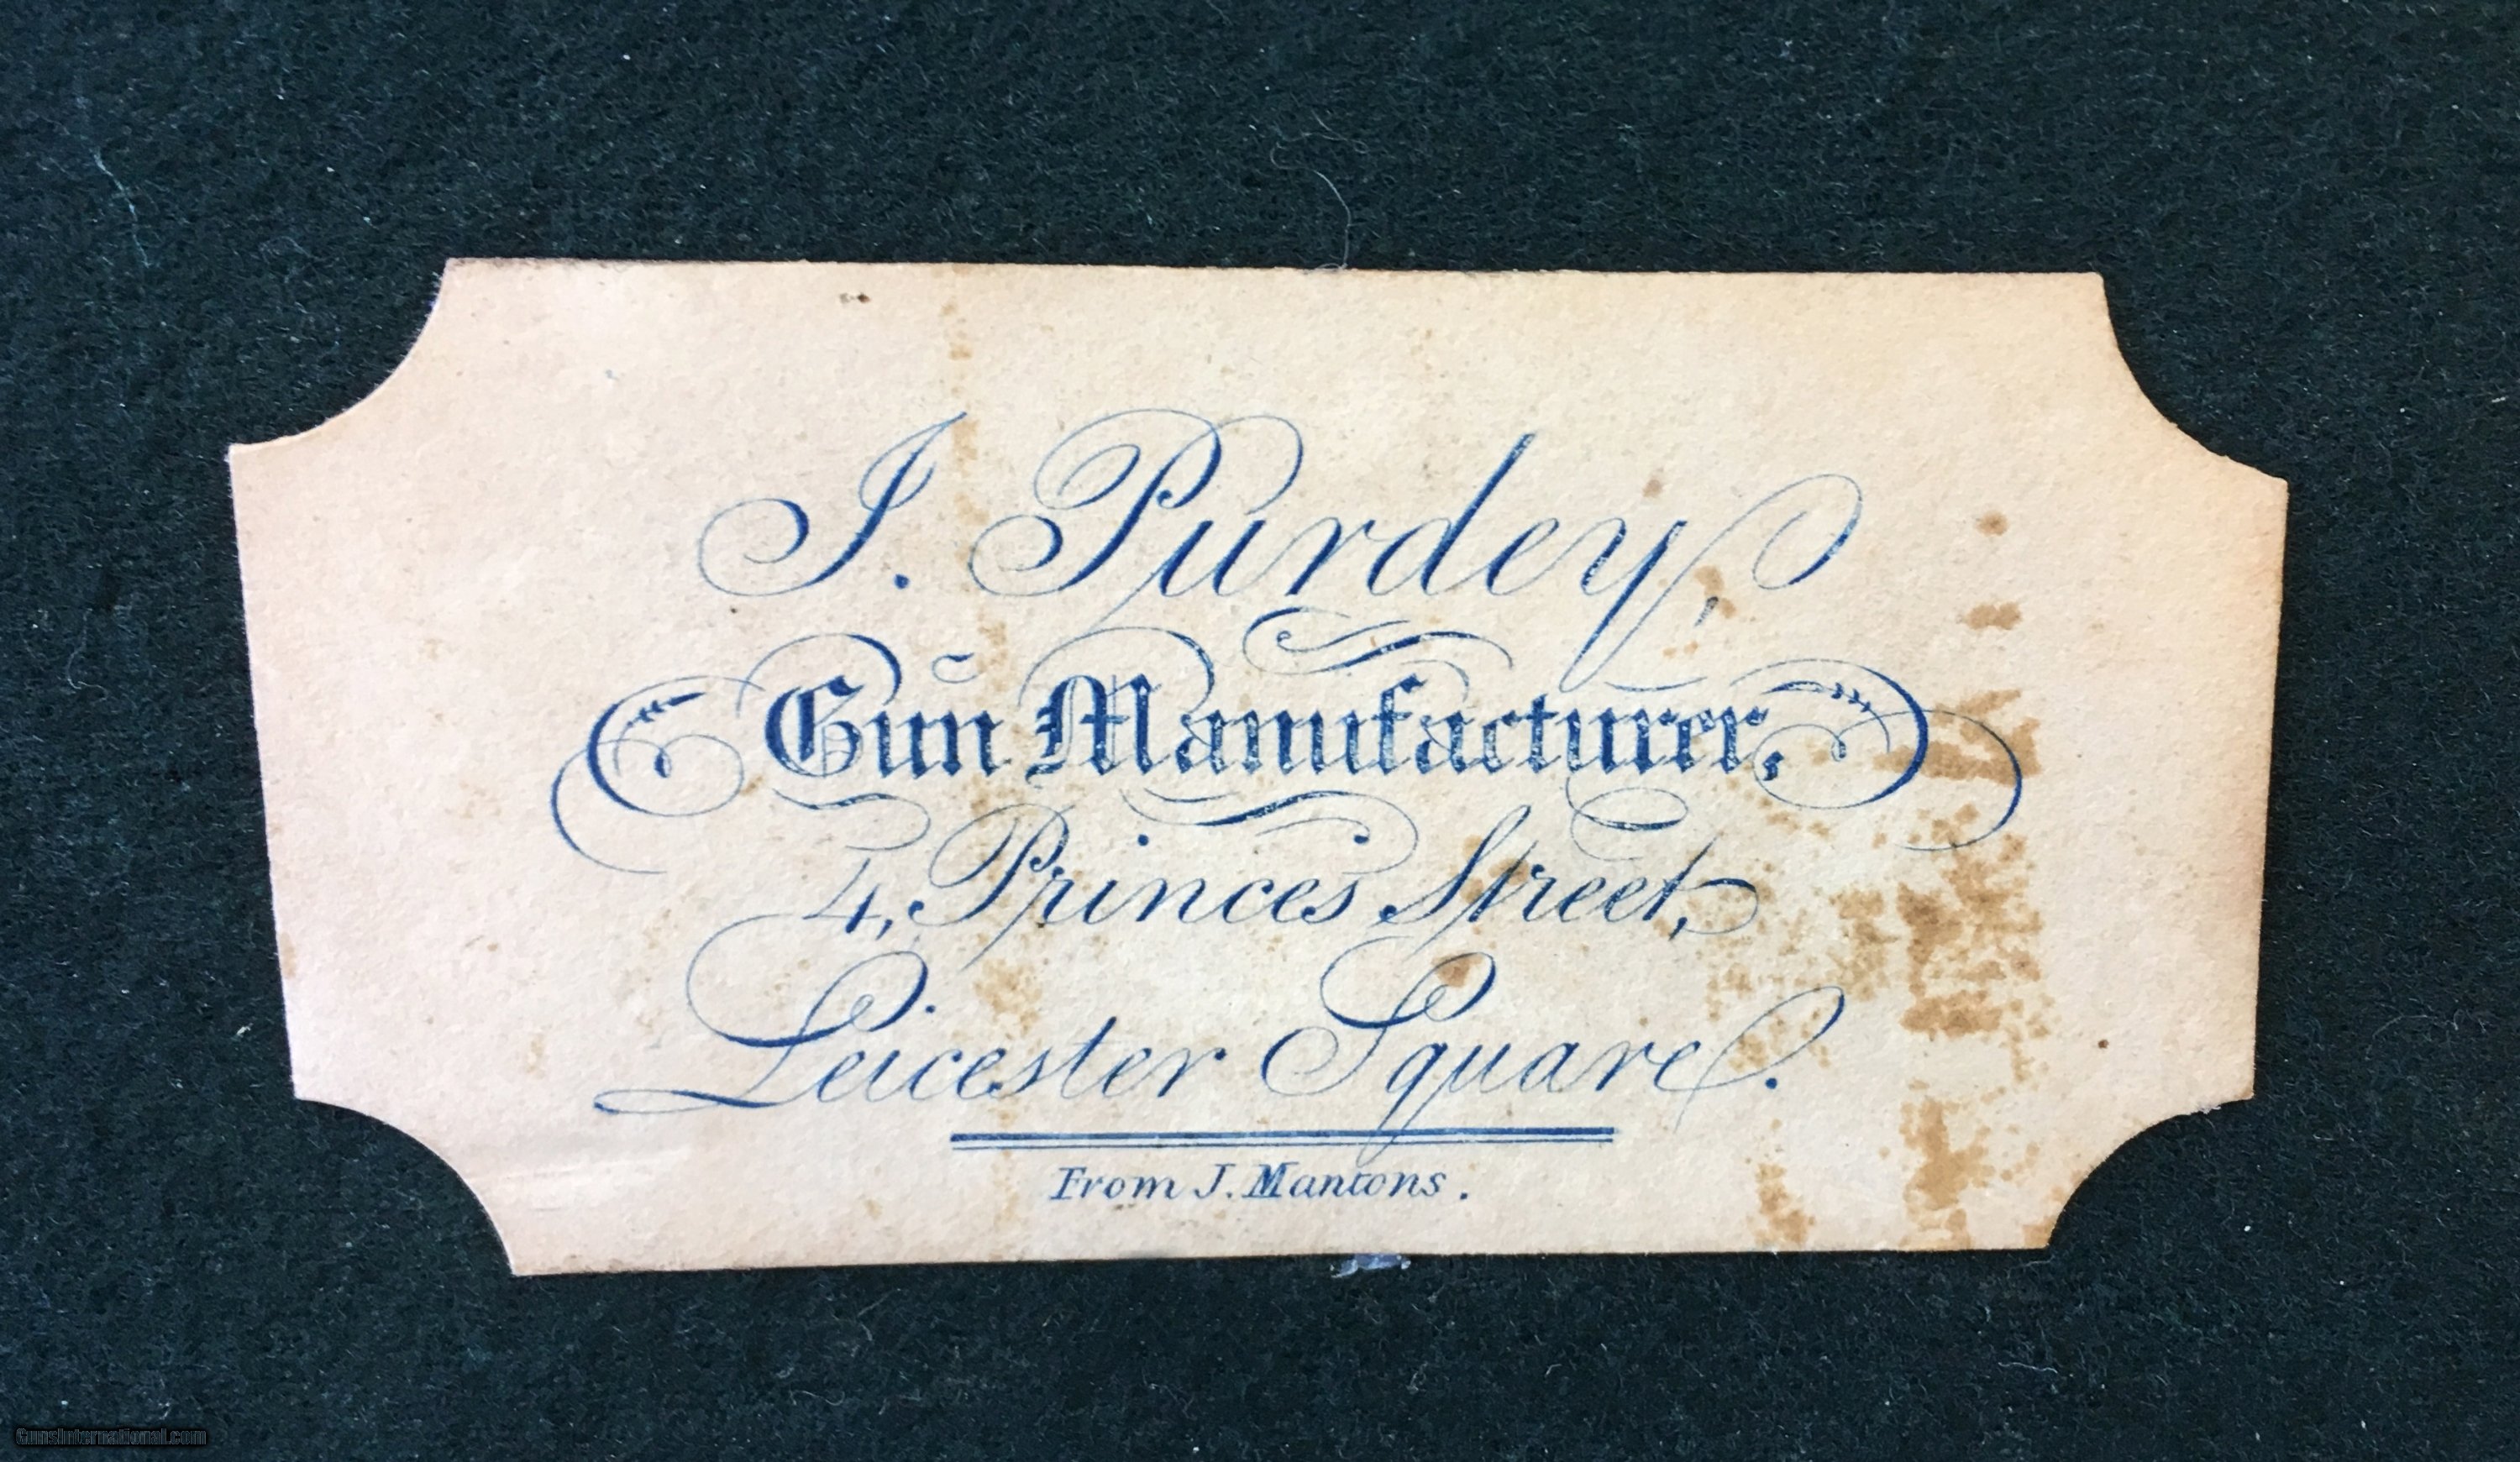 J. Purdey,
Gun Manufacturer,
4, Princes Street,
Leicester Square.
From J. Mantons.
GunsInternational.com